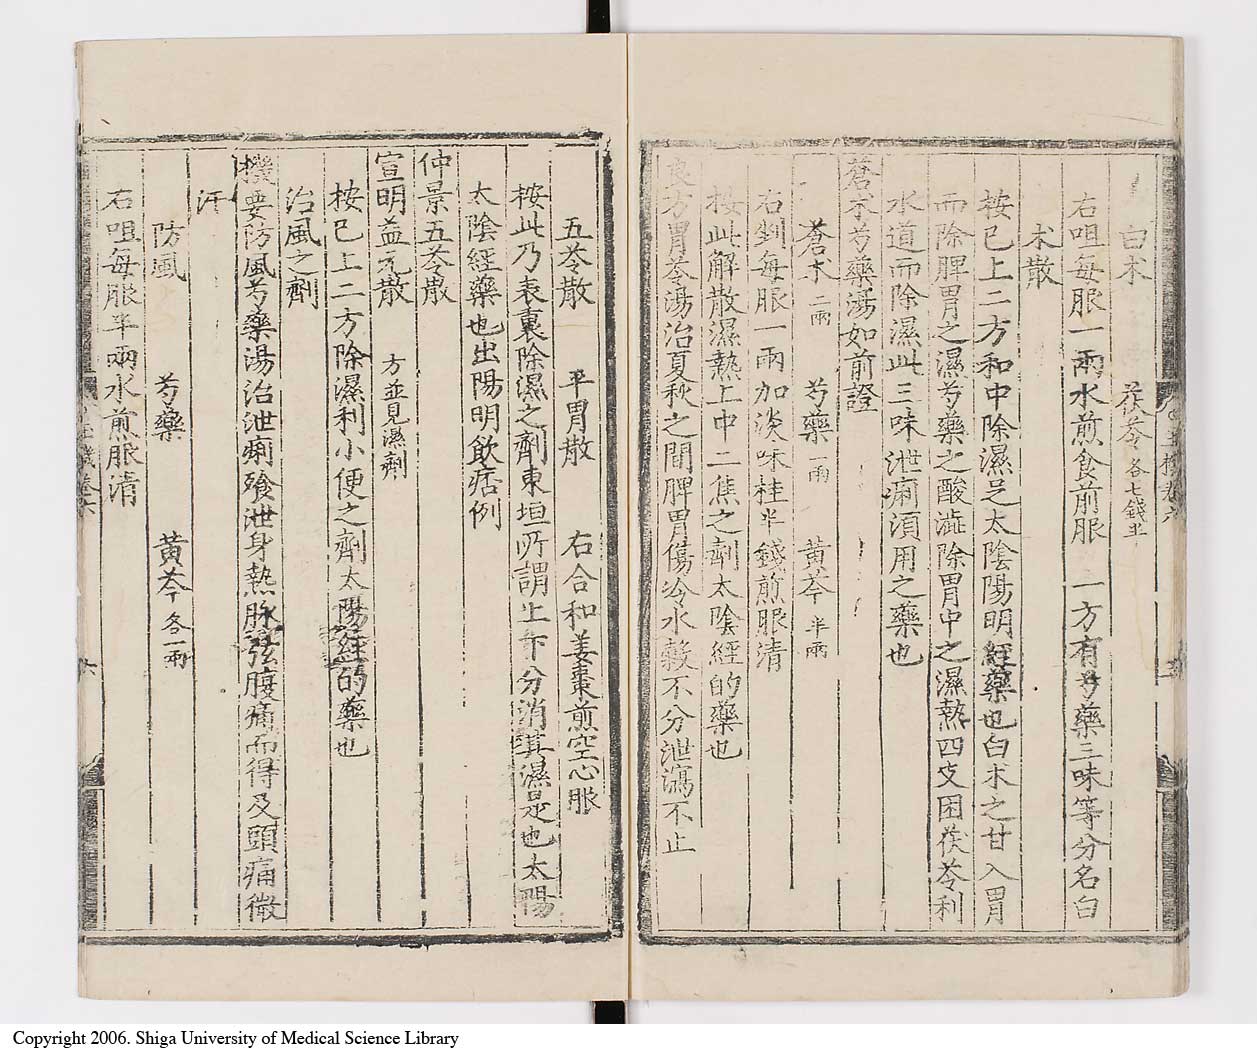 白朮 茯苓各七錢半
右㕮咀每服一兩水煎食前服 一方有芍藥三味等分名白
朮散
按已上二方和中除濕足太陰陽明經藥也白朮之甘入胃
而除脾胃之濕芍藥之酸澁除胃中之濕熱四支困茯苓利
水道而除濕此三味泄痢須用之藥也
蒼朮芍藥湯如前證
蒼朮二兩 芍藥一兩 黃芩半兩
右剉每服一兩加淡味桂半錢煎服清
按此解散濕熱上中二焦之劑太陰經的藥也
良方胃苓湯治夏秋之間脾胃傷冷水穀不分泄瀉不止
五苓散 平胃散 右合和姜棗煎空心服
按此乃表裏除濕之劑東垣所謂上下分消其濕是也太陽
太陰經藥也出陽明飲痞例
仲景五苓散
宣明益元散 方並見濕劑
按已上二方除濕利小便之劑太陽經的藥也
治風之劑
機要防風芍藥湯治泄痢飱泄身熱脉弦腹痛而得及頭痛微
汗
防風 芍藥 黃芩各一兩
右㕮咀每服半兩水煎服清
Copyright 2006. Shiga University of Medical Science Library